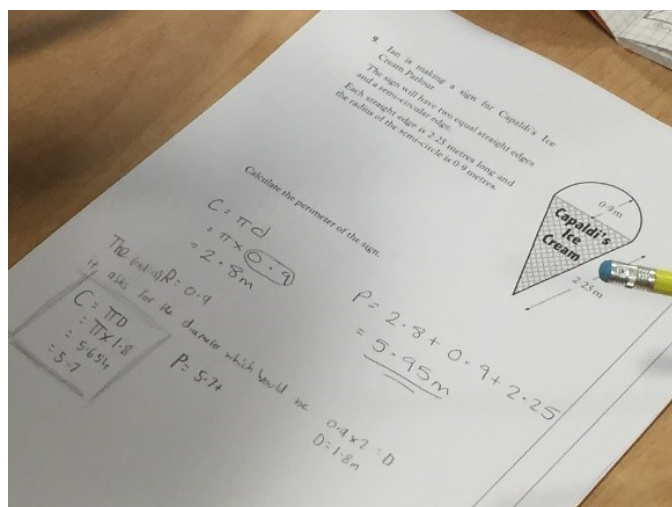 9 Ian is making a sign for Capaldi's Ice
Cream Parlour.
The sign will have two equal straight edges
and a semi-circular edge.
Each straight edge is 2·25 metres long and
the radius of the semi-circle is 0·9 metres.
0·9m
Capaldi's
Ice
Cream
2·25m
Calculate the perimeter of the sign.
C = πd
= π × 0.9
= 2.8m
P = 2.8 + 0.9 + 2.25
= 5.95m
The radius R = 0.9
it asks for the diameter which would be 0.9 × 2 = D
D = 1.8m
C = πD
= π × 1.8
= 5.654
= 5.7
P = 5.7+